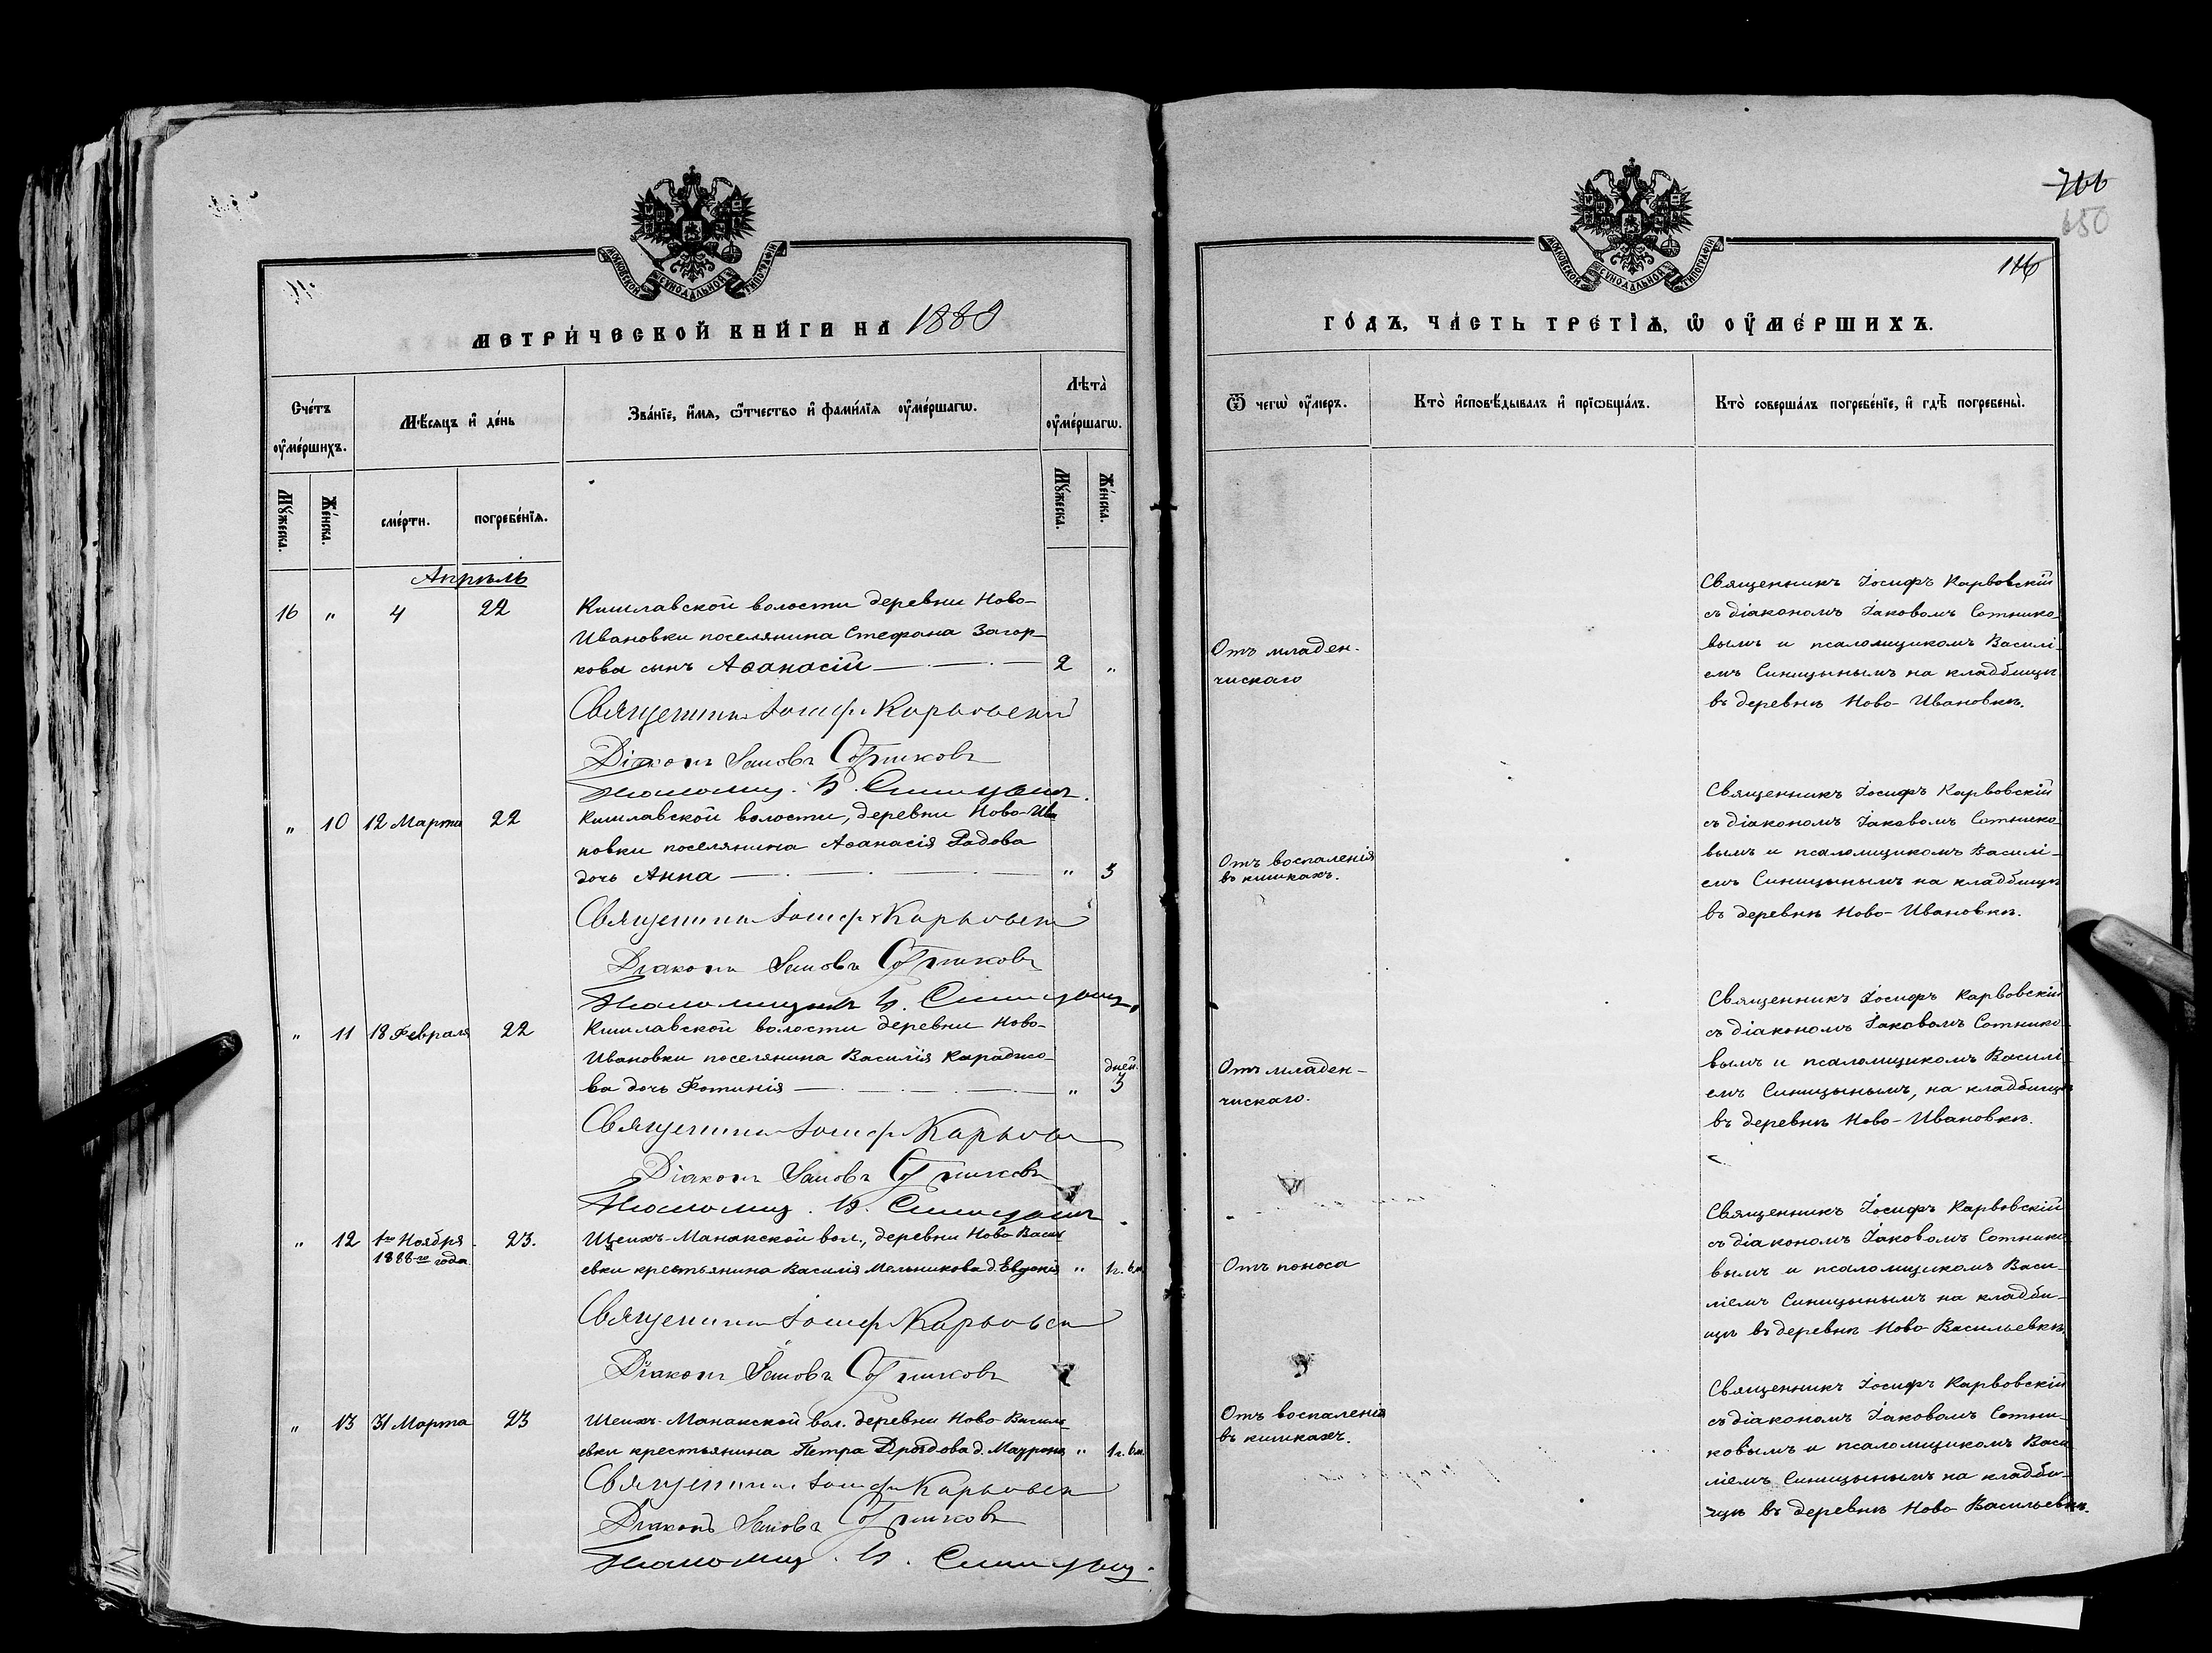 МОСКОВСКОЙ СѴНОДАЛЬНОЙ ТИПОГРАФІИ
МЕТРИ́ЧЕСКОЙ КНИ́ГИ НА 1889
Сче́тъ оу҆ме́ршихъ.
Мѣ́сяцъ и҆ де́нь
Зва́нїе, и҆́мя, ѻ҆́тчество и҆ фами́лїя оу҆ме́ршагѡ.
Лѣта̀ оу҆ме́ршагѡ.
Мꙋ́жеска.
Же́нска.
сме́рти.
погребе́нїѧ.
Мꙋ́жеска.
Же́нска.
Апрѣль
16 " 4 22 Кишлавской волости деревни Ново-
Ивановки поселянина Стефана Загор-
кова сынъ Аѳанасій 2 "
Священникъ Іосифъ Карвовскій
Діаконъ Іаковъ Сотниковъ
Псаломщ. В. Синицынъ.
" 10 12 Марта 22 Кишлавской волости, деревни Ново-Ива
новки поселянина Аѳанасія Радова
дочь Анна " 3
Священникъ Іосифъ Карвовскій
Діаконъ Іаковъ Сотниковъ
Псаломщикъ В. Синицынъ.
" 11 18 Февраля 22 Кишлавской волости деревни Ново-
Ивановки поселянина Василія Караджо-
дней.
ва дочь Фотинія " 3
Священникъ Іосифъ Карвовскій
Діаконъ Іаковъ Сотниковъ
Псаломщ. В. Синицынъ
" 12 1го Ноября 23. Шеихъ-Манакской вол., деревни Ново Василь
1888го года
евки крестьянина Василія Мельникова д. Евдокія " 1г. 6м.
Священникъ Іосифъ Карвовскій
Діаконъ Іаковъ Сотниковъ
" 13 31 Марта 23 Шеихъ-Манакской вол. деревни Ново Василь
евки крестьянина Петра Дроздова д. Маурона " 1г. 6м.
Священникъ Іосифъ Карвовскій
Діаконъ Іаковъ Сотниковъ
Псаломщ. В. Синицынъ.
650
116
МОСКОВСКОЙ СѴНОДАЛЬНОЙ ТИПОГРАФІИ
ГО́ДЪ, ЧА́СТЬ ТРЕ́ТЇѦ, Ѡ҆ ОУ҆МЕ́РШИХЪ.
Ѿ чегѡ̀ оу҆́меръ.
Кто̀ и҆сповѣ́дывалъ и҆ прїѡбща́лъ.
Кто̀ соверша́лъ погребе́нїе, и҆ гдѣ̀ погребены̀.
Отъ младен-
чискаго
Священникъ Іосифъ Карвовскій
съ діакономъ Іаковомъ Сотнико
вымъ и псаломщикомъ Василі-
емъ Синицынымъ на кладбищѣ
въ деревнѣ Ново-Ивановкѣ.
Отъ воспаленія
въ кишкахъ.
Священникъ Іосифъ Карвовскій
съ діакономъ Іаковомъ Сотнико-
вымъ и псаломщикомъ Василі-
емъ Синицынымъ на кладбищѣ
въ деревнѣ Ново-Ивановкѣ.
Отъ младен-
чискаго.
Священникъ Іосифъ Карвовскій
съ діакономъ Іаковомъ Сотнико
вымъ и псаломщикомъ Василі
емъ Синицынымъ, на кладбищѣ
въ деревнѣ Ново-Ивановкѣ.
Отъ поноса
Священникъ Іосифъ Карвовскій
съ діакономъ Іаковомъ Сотнико
вымъ и псаломщикомъ Васи-
ліемъ Синицынымъ на кладби-
щѣ въ деревнѣ Ново Васильевкѣ.
Отъ воспаленія
въ кишкахъ.
Священникъ Іосифъ Карвовскій
съ діакономъ Іаковомъ Сотни-
ковымъ и псаломщикомъ Васи
ліемъ Синицынымъ на кладби-
щѣ въ деревнѣ Ново Васильевкѣ.